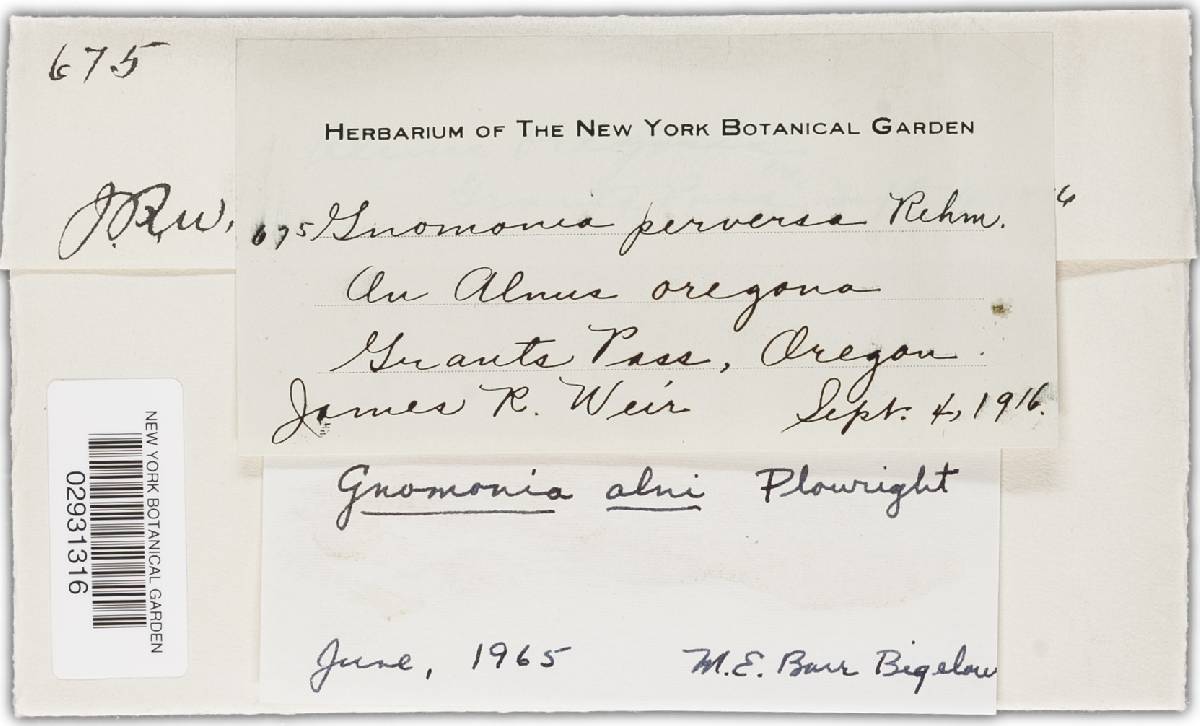 675
HERBARIUM OF THE NEW YORK BOTANICAL GARDEN
J.R.W.
675 Gnomonia perversa Rehm.
On Alnus oregona
Grants Pass, Oregon.
James R. Weir Sept. 4, 1916.
Gnomonia alni Plowright
June, 1965 M.E. Barr Bigelow
NEW YORK BOTANICAL GARDEN
02931316